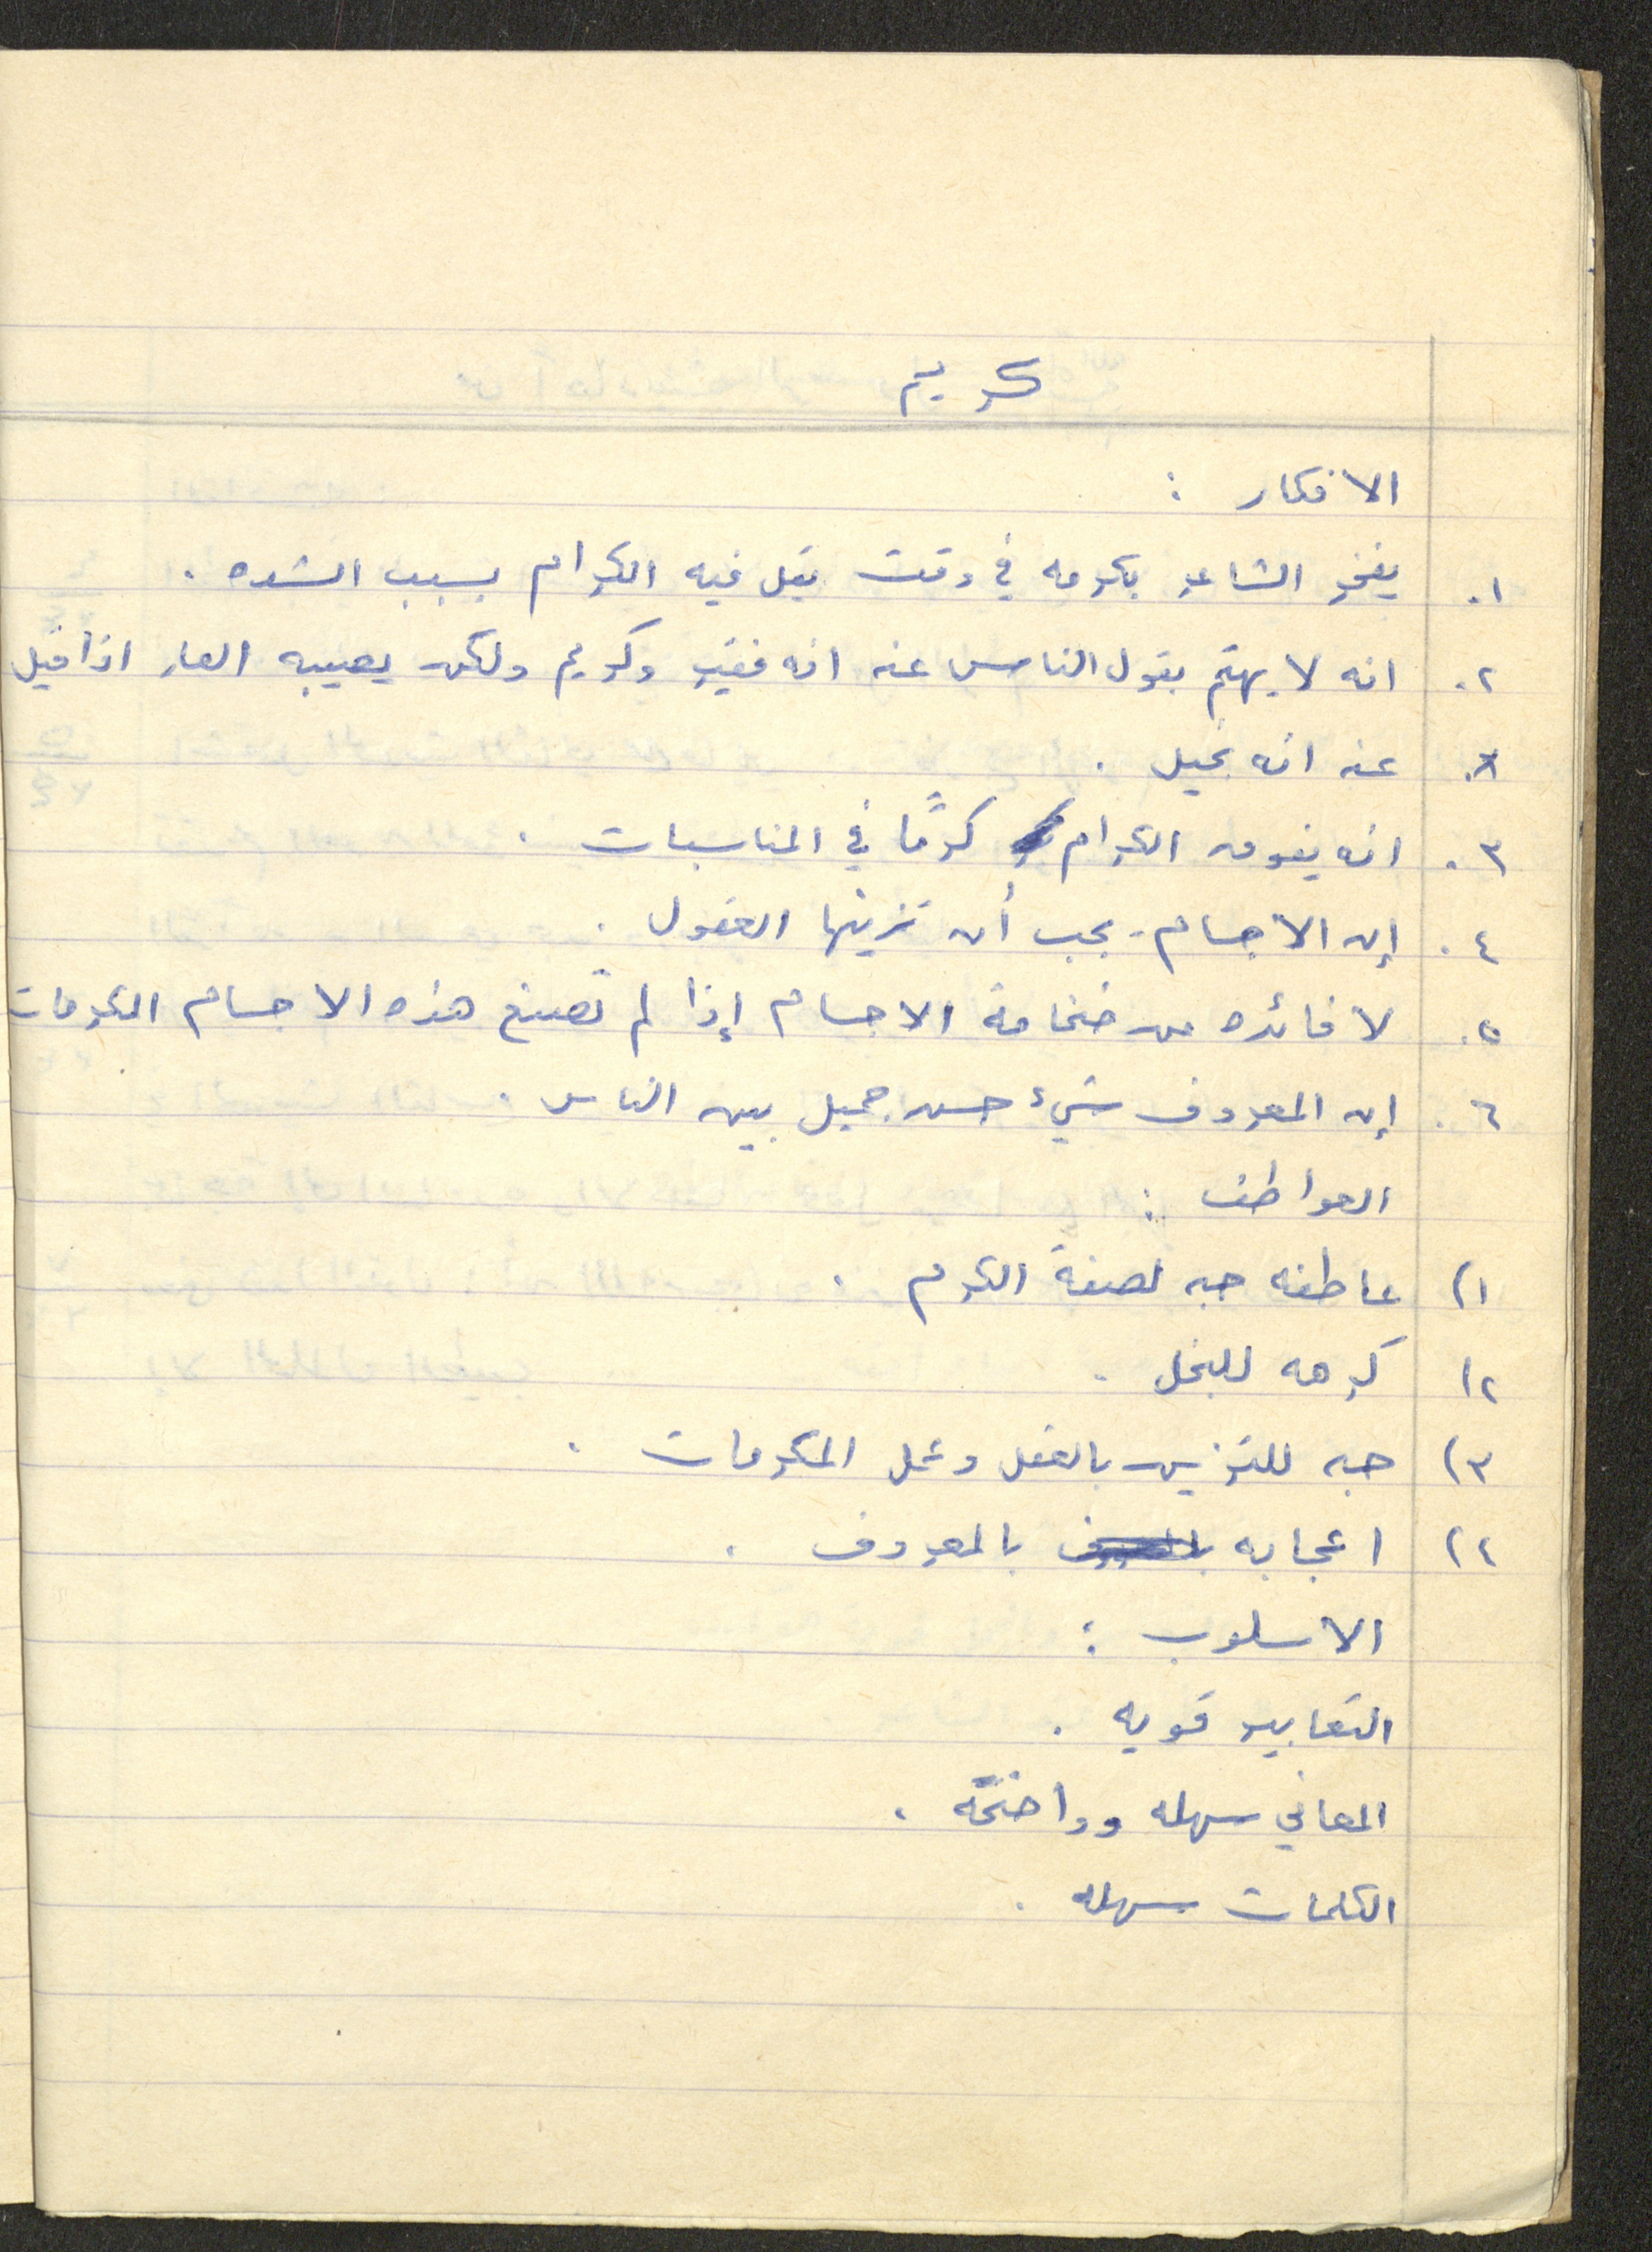 كريم
الافكار :
١. يفخر الشاعر بكرمه في وقت يقل فيه الكرام بسبب الشده .
٢. انه لا يهتم بقول الناس عنه انه فقير وكريم ولكن يعيبه العار اذا قيل
عنه انه بخيل .
٣. انه يفوق الكرام كرمًا في المناسبات .
٤. إن الاجسام يجب أن تزينها العقول .
٥. لا فائده من ضخامة الاجسام إذا لم تصنع هذه الاجسام المكرمات
٦. إن المعروف شيء حسن جميل بين الناس .
العواطف :
١) عاطفه حبه لصفة الكرم .
٢) كرهه للبخل .
٣) حبه للتزين بالعقل وعمل المكرمات .
٤) اعجابه بالمعروف .
الاسلوب :
التعابير قويه .
المعاني سهله وواضحة .
الكلمات سهله .